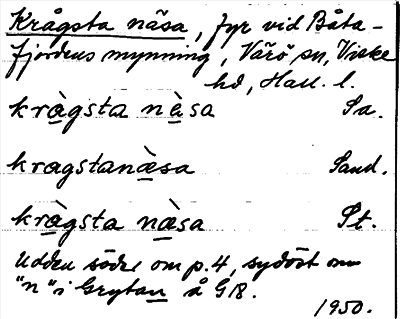 Krågsta näsa, fyr vid Båta-
fjordens mynning, Värö sn, Viske
hd, Hall. l.
kràgsta nàsa Sa.
kragstanæ̀sa Sand.
kràgsta næ̀sa St.
Udden södra om p.4, sydöst om
"n" i Grytan å G18.
1950.